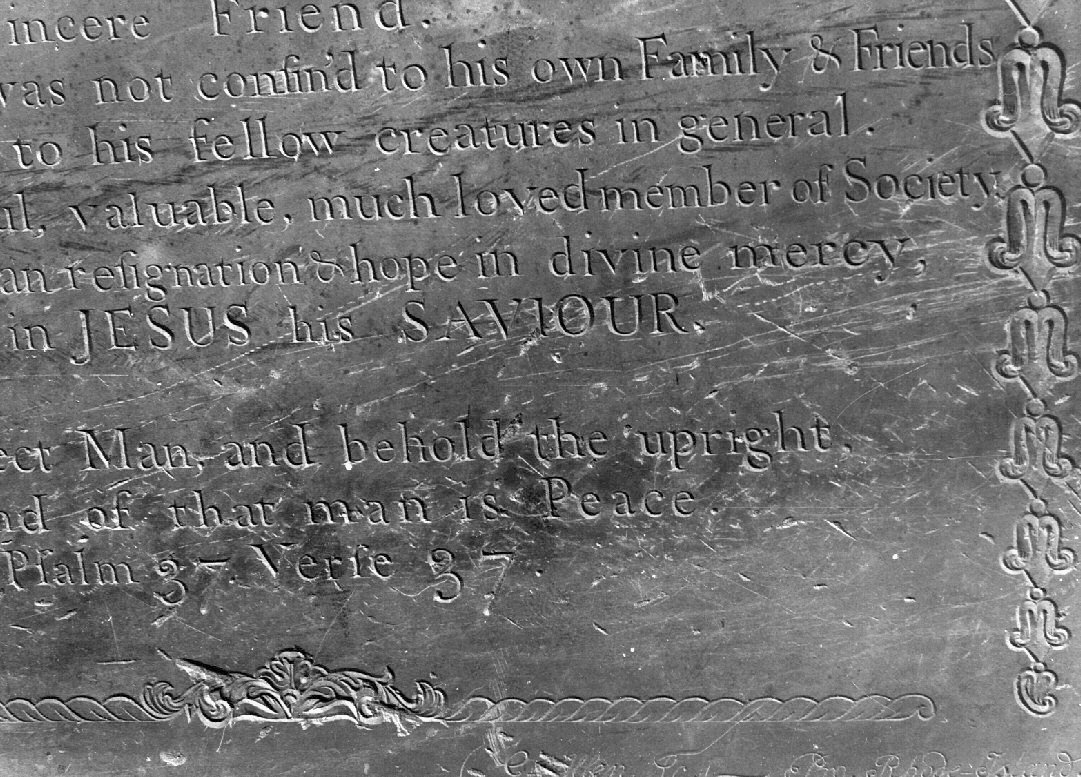 incere Friend.
was not confin'd to his own Family & Friends
to his fellow creatures in general.
ul, valuable, much loved member of Society,
an reſignation & hope in divine mercy,
in JESUS his SAVIOUR.
ect Man, and behold the upright,
nd of that man is Peace.
Pſalm 37. Verſe 37.
Rhode-Iſland